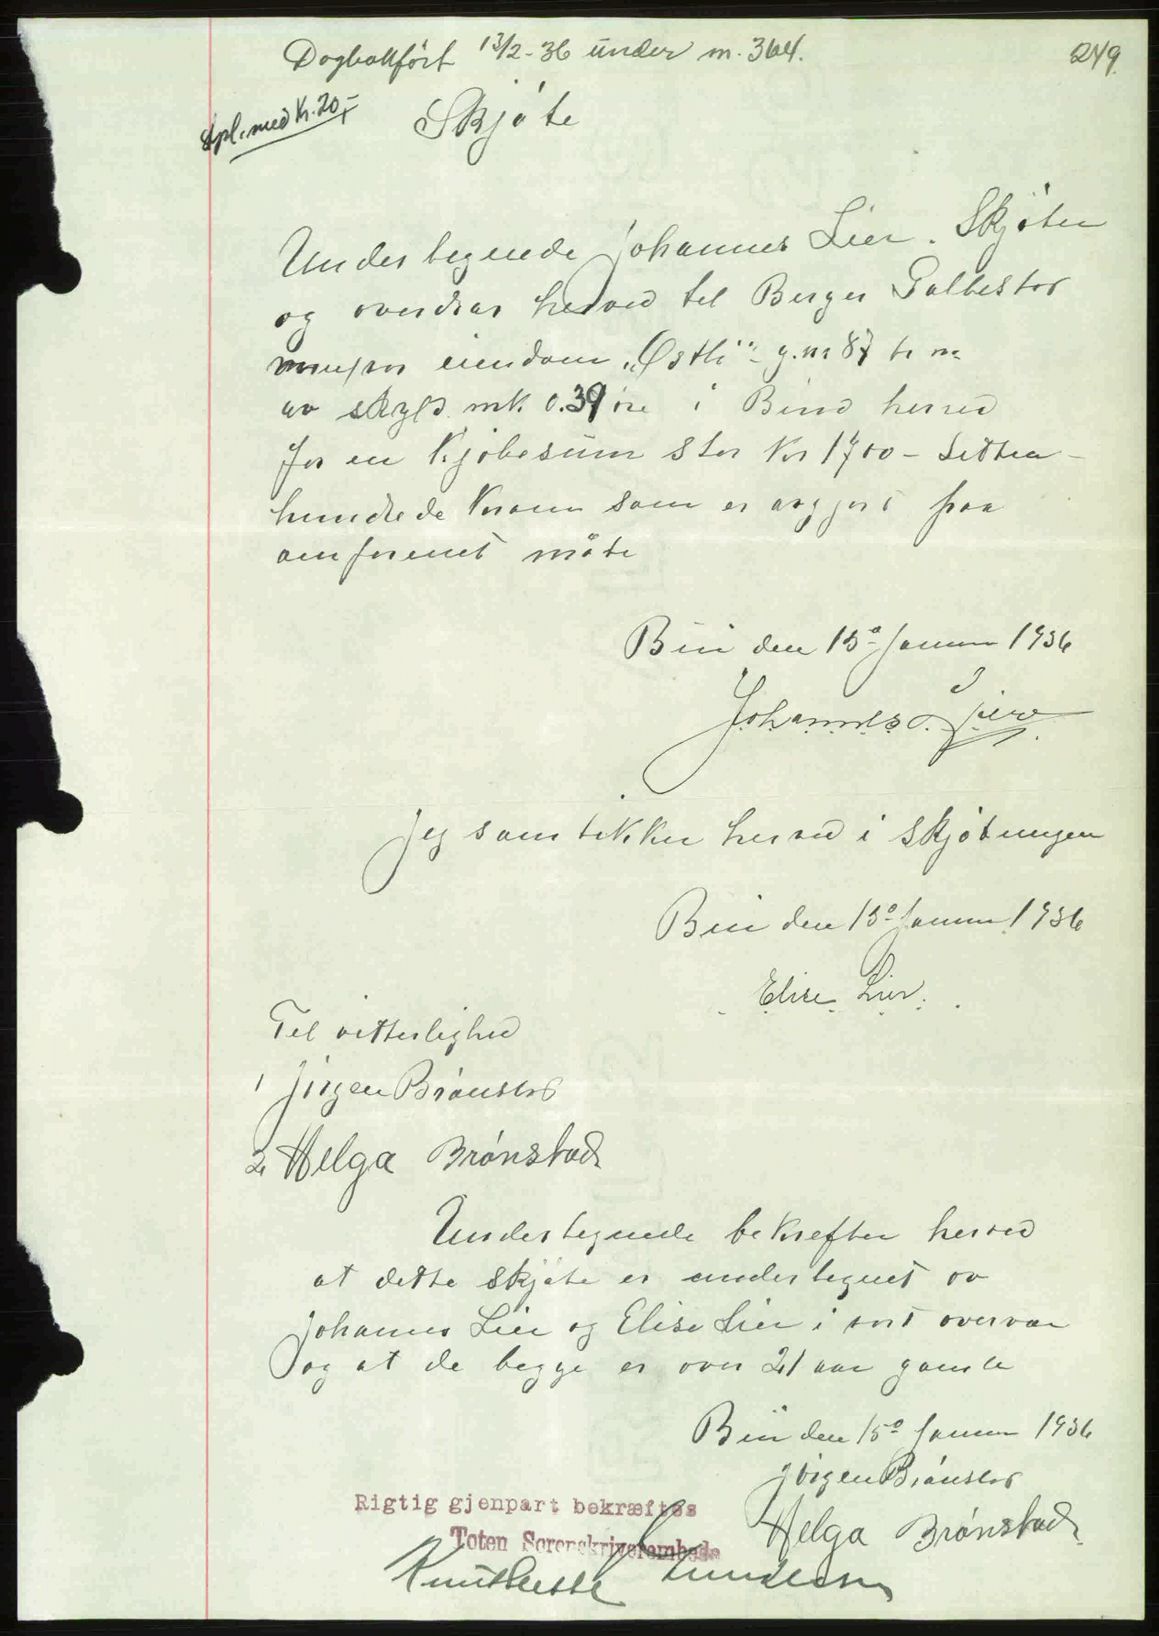 Dagbokført 13/2-36 under nr. 364.
249.
Spl. med kr. 20.-
Skjøte
Undertegnede Johannes Lier. Skjøter
og overdrar herved til Berger Galbestad
min eiendom „Østli" g.nr 87 br nr
av skyld mk. 0.39 øre i Biri herred
for en kjøbesum stor kr 1700 - Sytten -
hundrede kroner som er avgjort paa
omforenet måte
Biri den 15de Januar 1936
Johannes Lier
Jeg samtykker herved i skjøtningen
Biri den 15de Januar 1936
Elise Lier.
Til vitterlighed
1 Jørgen Brønstad
2 Helga Brønstad
Undertegnede bekrefter herved
at dette skjøte er undertegnet av
Johannes Lier og Elise Lier i vort overvær
og at de begge er over 21 aar gamle
Biri den 15de Januar 1936
Jørgen Brønstad
Helga Brønstad
Rigtig gjenpart bekræftes
Toten Sorenskriverembede